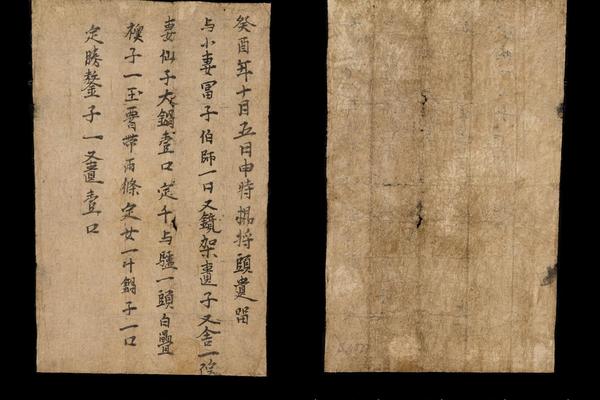 癸酉年十月五日申時楊將頭遺留
与小妻冨子伯師一口又鏡架匱子又舍一院
妻仙子大鍋壹口定千与驢一頭白疊
襖子一玉腰帶兩條定女一斗鍋子一口
定勝鏊子一又匱壹口